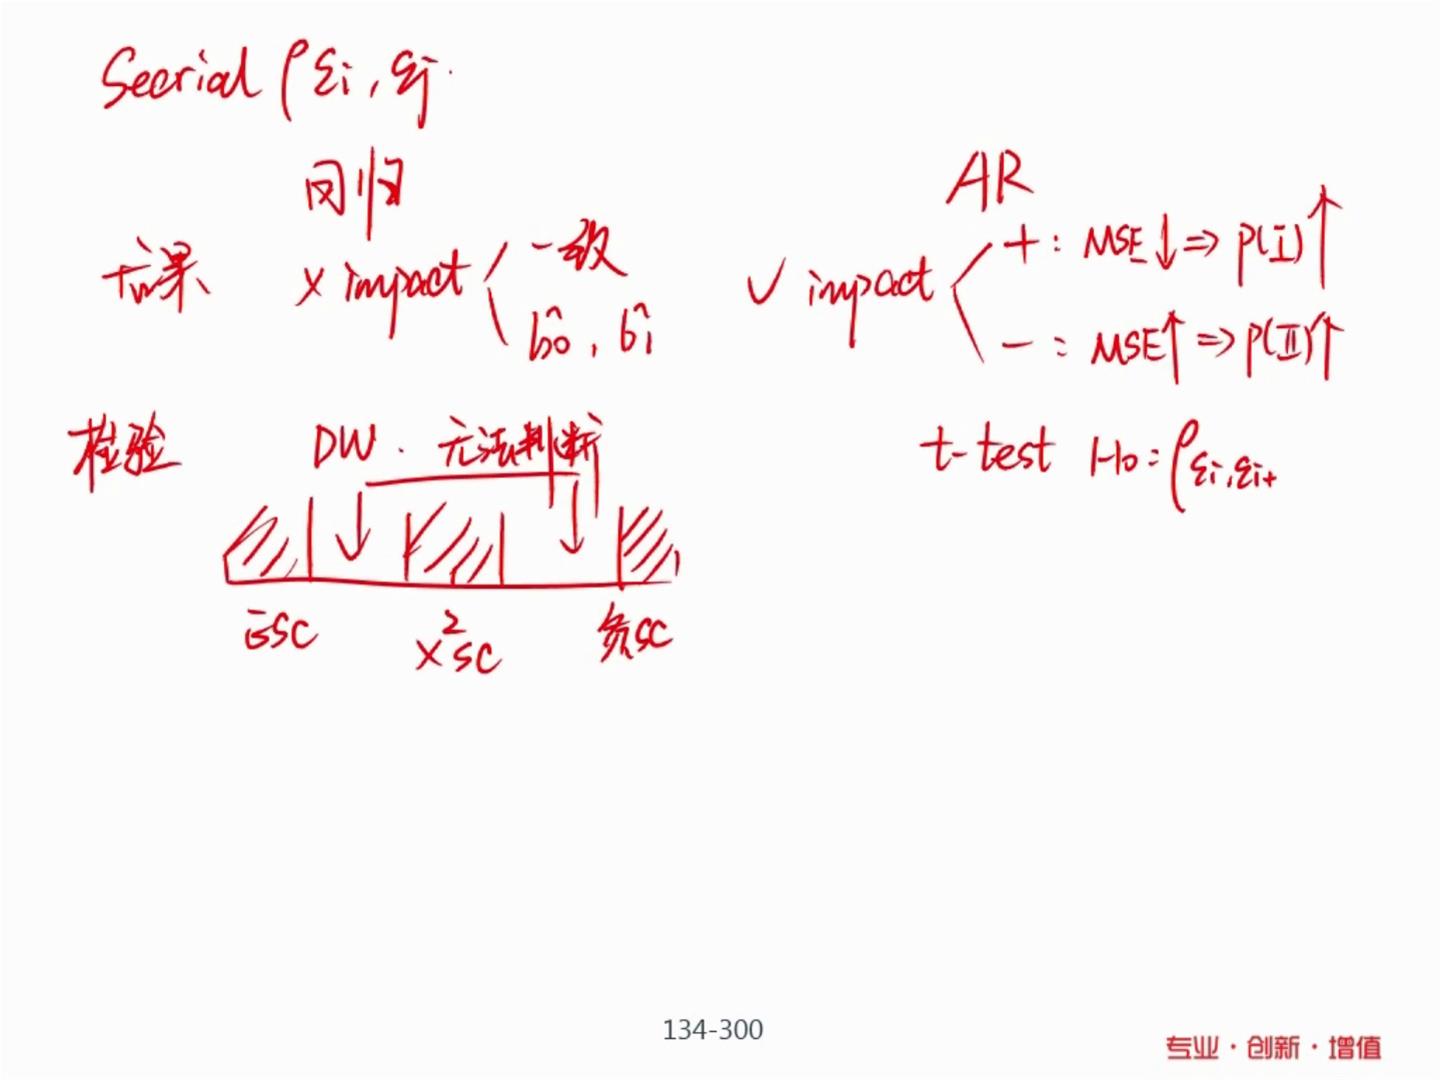 Seerial ρ εi, εj
回归
AR
后果 × impact 一致
b̂0, b̂1
✓ impact
+: MSE↓ ⇒ P(I)↑
-: MSE↑ ⇒ P(II)↑
检验 DW. 无法判断
t-test H0: ρεi,εi+
正SC
×SC
2
负SC
134-300
专业·创新·增值